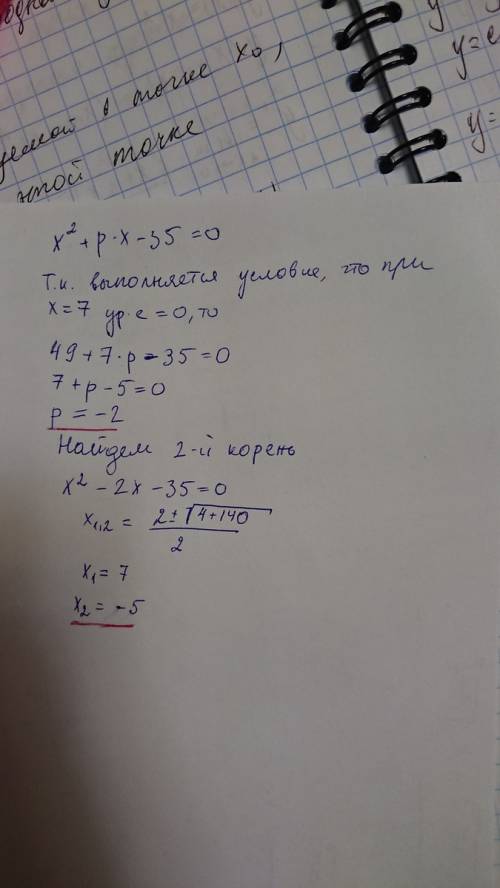 одна
y
y=e
y=
уемой в точке x₀,
этой точке
x² + p·x - 35 = 0
Т.к. выполняется условие, что при
x = 7 ур-е = 0, то
49 + 7·p - 35 = 0
7 + p - 5 = 0
p = -2
Найдем 2-й корень
x² - 2x - 35 = 0
x₁,₂ = (2 ± √(4+140)) / 2
x₁ = 7
x₂ = -5